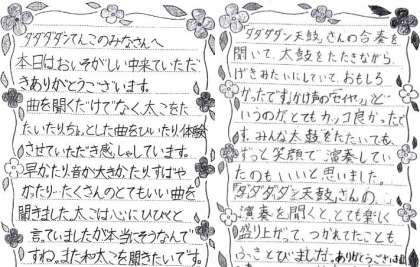 ダダダダンてんこのみなさんへ
本日はおいそがしい中来ていただ
きありがとうございます。
曲を聞くだけでなく太こをた
たいたりちょとした曲をひいたり、体験
させていただき感しゃしています。
早かたり、音が大きかたり、すばや
かったり…たくさんのとてもいい曲を
聞きました。太こは心にひびくと
言ていましたが本当にそうなんで
すね。また和太こを聞きたいです。
ダダダダン天鼓さんの合奏を
聞いて、太鼓をたたきながら
げきみたいにしていて、おもしろ
かったです。かけ声の「セイヤ」と
いうのが、とてもカッコ良かったで
す。みんな太鼓をたたいても、
ずっと笑顔で演奏してい
たのもいいと思いました。
「ダダダダン天鼓」さんの
演奏を聞くと、とても楽しく
盛り上がって、つかれてたことも
ふきとびました。ありがとうございました